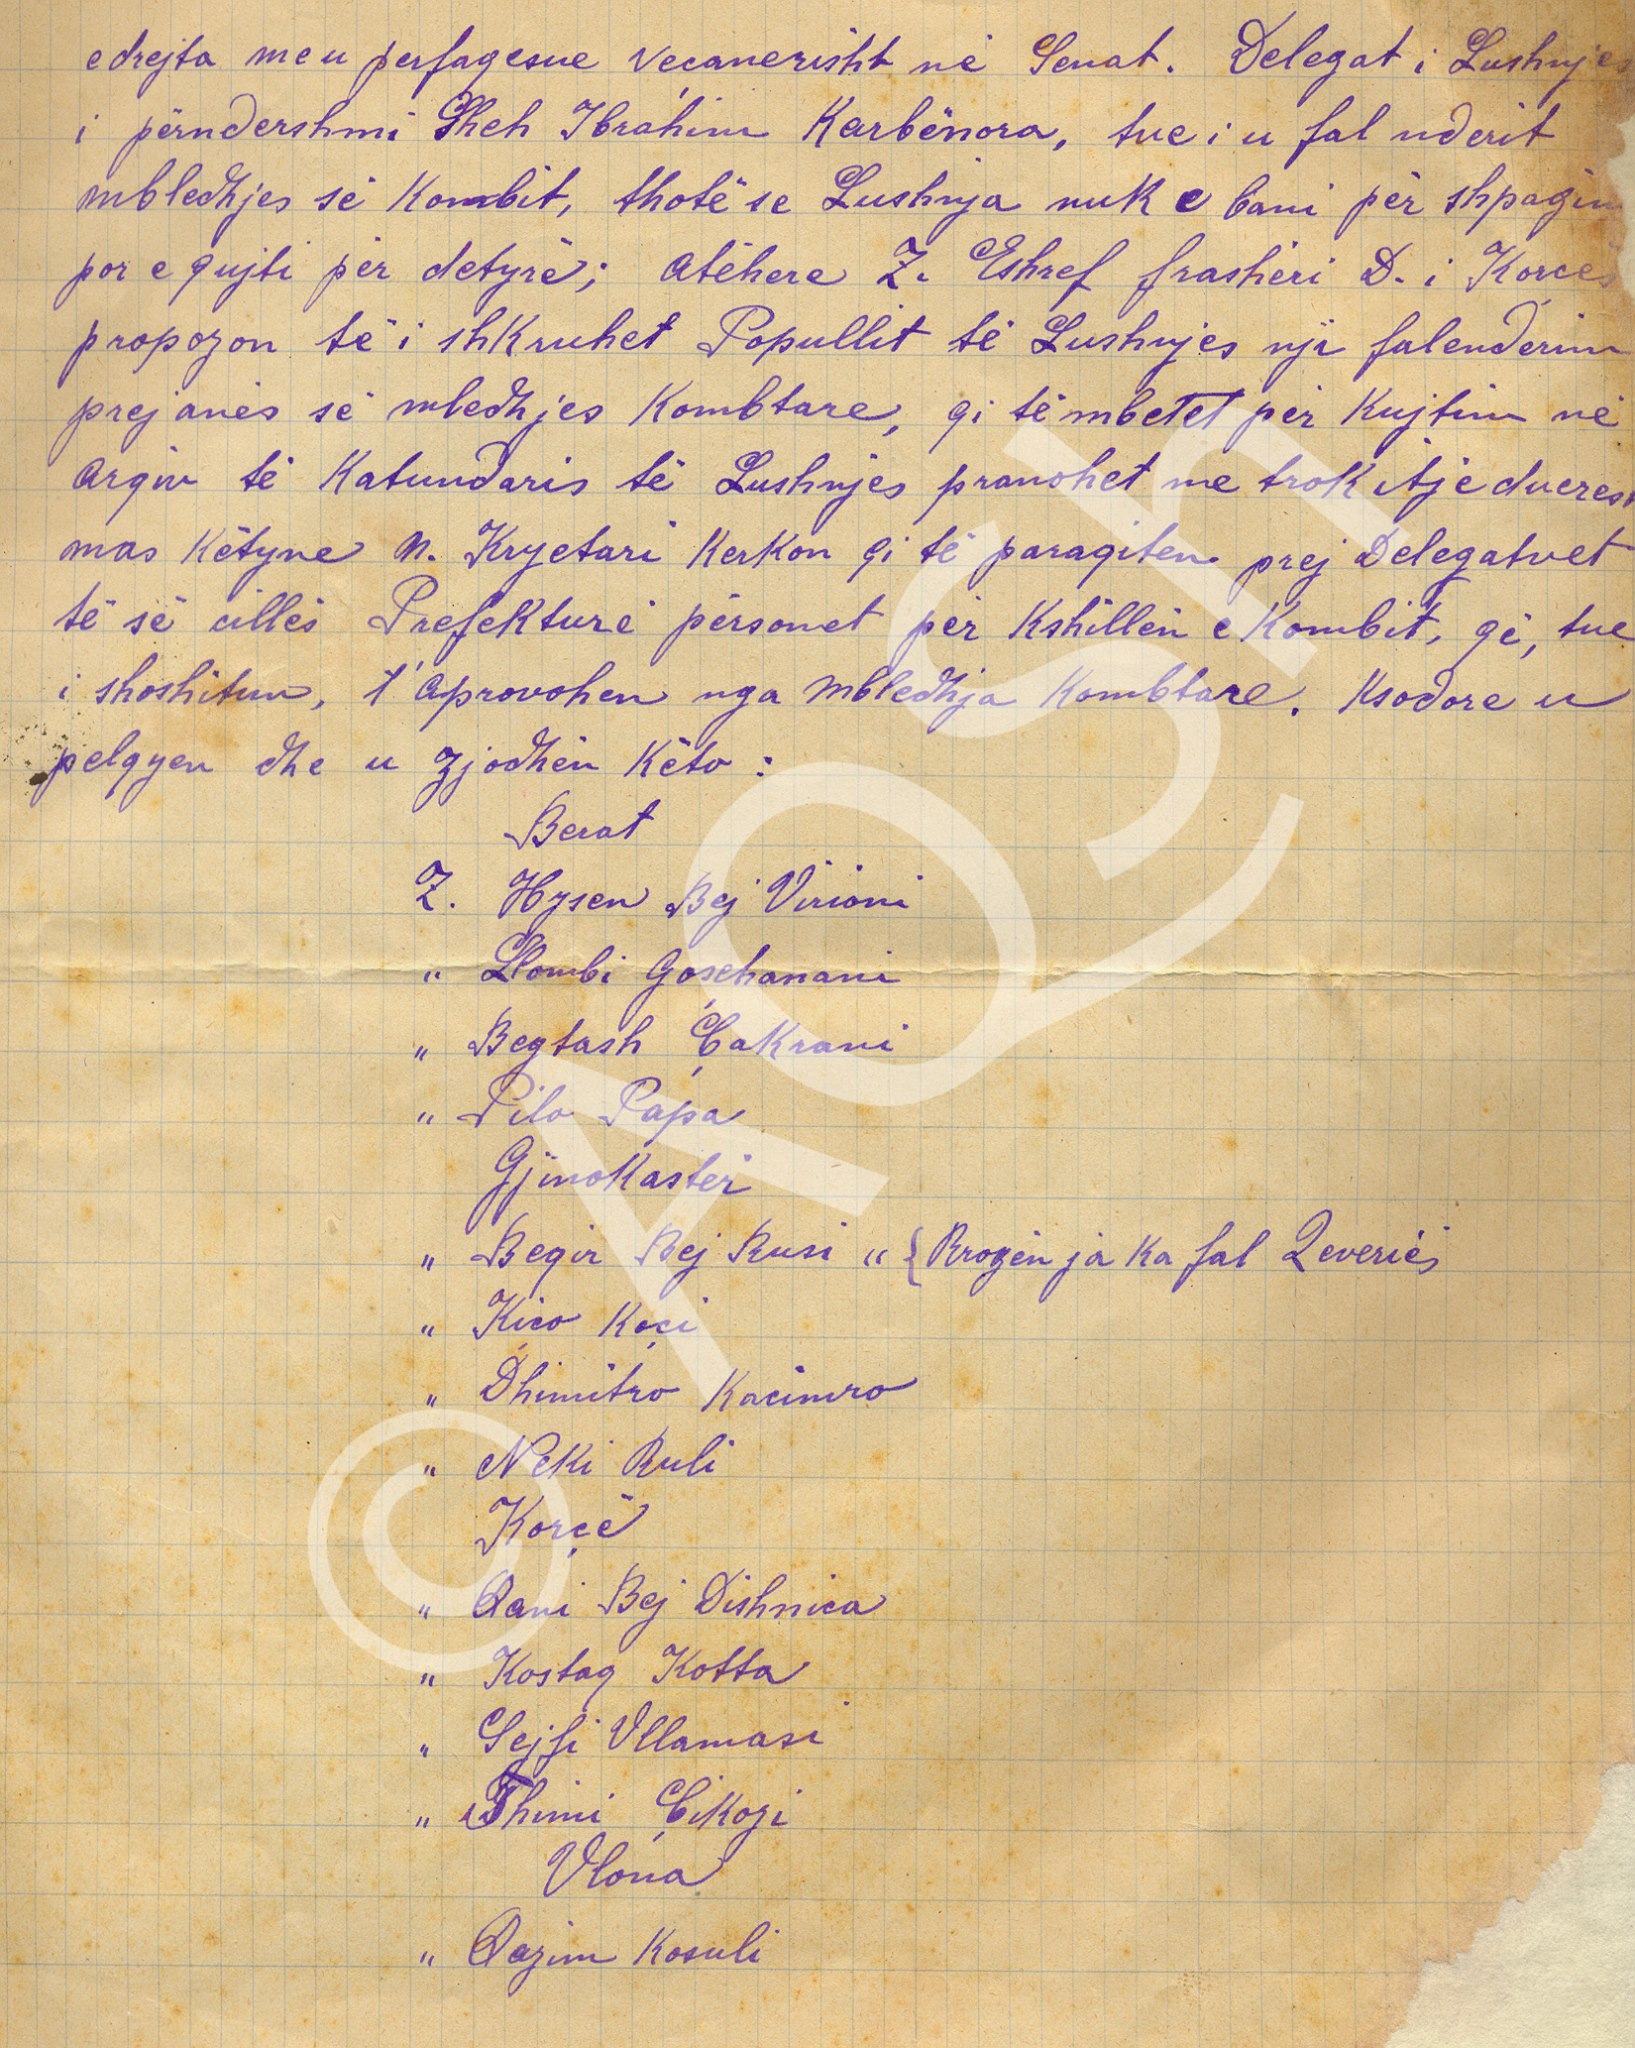 e drejta me u perfaqesue veçanerisht në Senat. Delegat i Lushnjes
i përndershmi Sheh Ibrahim Karbënora, tue i u fal nderit
mbledhjes së Kombit, thotë se Lushnja nuk e bani për shpagim
por e qujti për detyrë; atëhere Z. Eshref frashëri D. i Korcës
propozon të i shkruhet Popullit të Lushnjes nji falenderim
prej anës së mledhjes Kombtare, qi të mbetet për Kujtim në
arqiv të Katundaris të Lushnjes pranohet me trokitje duersh
mas këtyne N. Kryetari kerkon qi të paraqiten prej Delegatvet
të së cillës Prefekturë përsonet për Kshillën e Kombit, që, tue
i shoshitun, t'aprovohen nga mbledhja Kombtare. Ksodore u
pelqyen dhe u zjodhën këto :
Berat
Z. Hysen Bej Virioni
" Llombi Goschanani
" Beqtash Çakrani
" Pilo Papa
Gjinokastër
" Beqir Bej Rusi " { Rrogën ja ka fal Qeveriës
" Kiço Koçi
" Dhimitro Kacimro
" Neki Ruli
Korçë
" Qani Bej Dishnica
" Kostaq Kotta
" Sejfi Vllamasi
" Thimi Çikozi
Vlona
" Qazim Kosuli
© AQSH